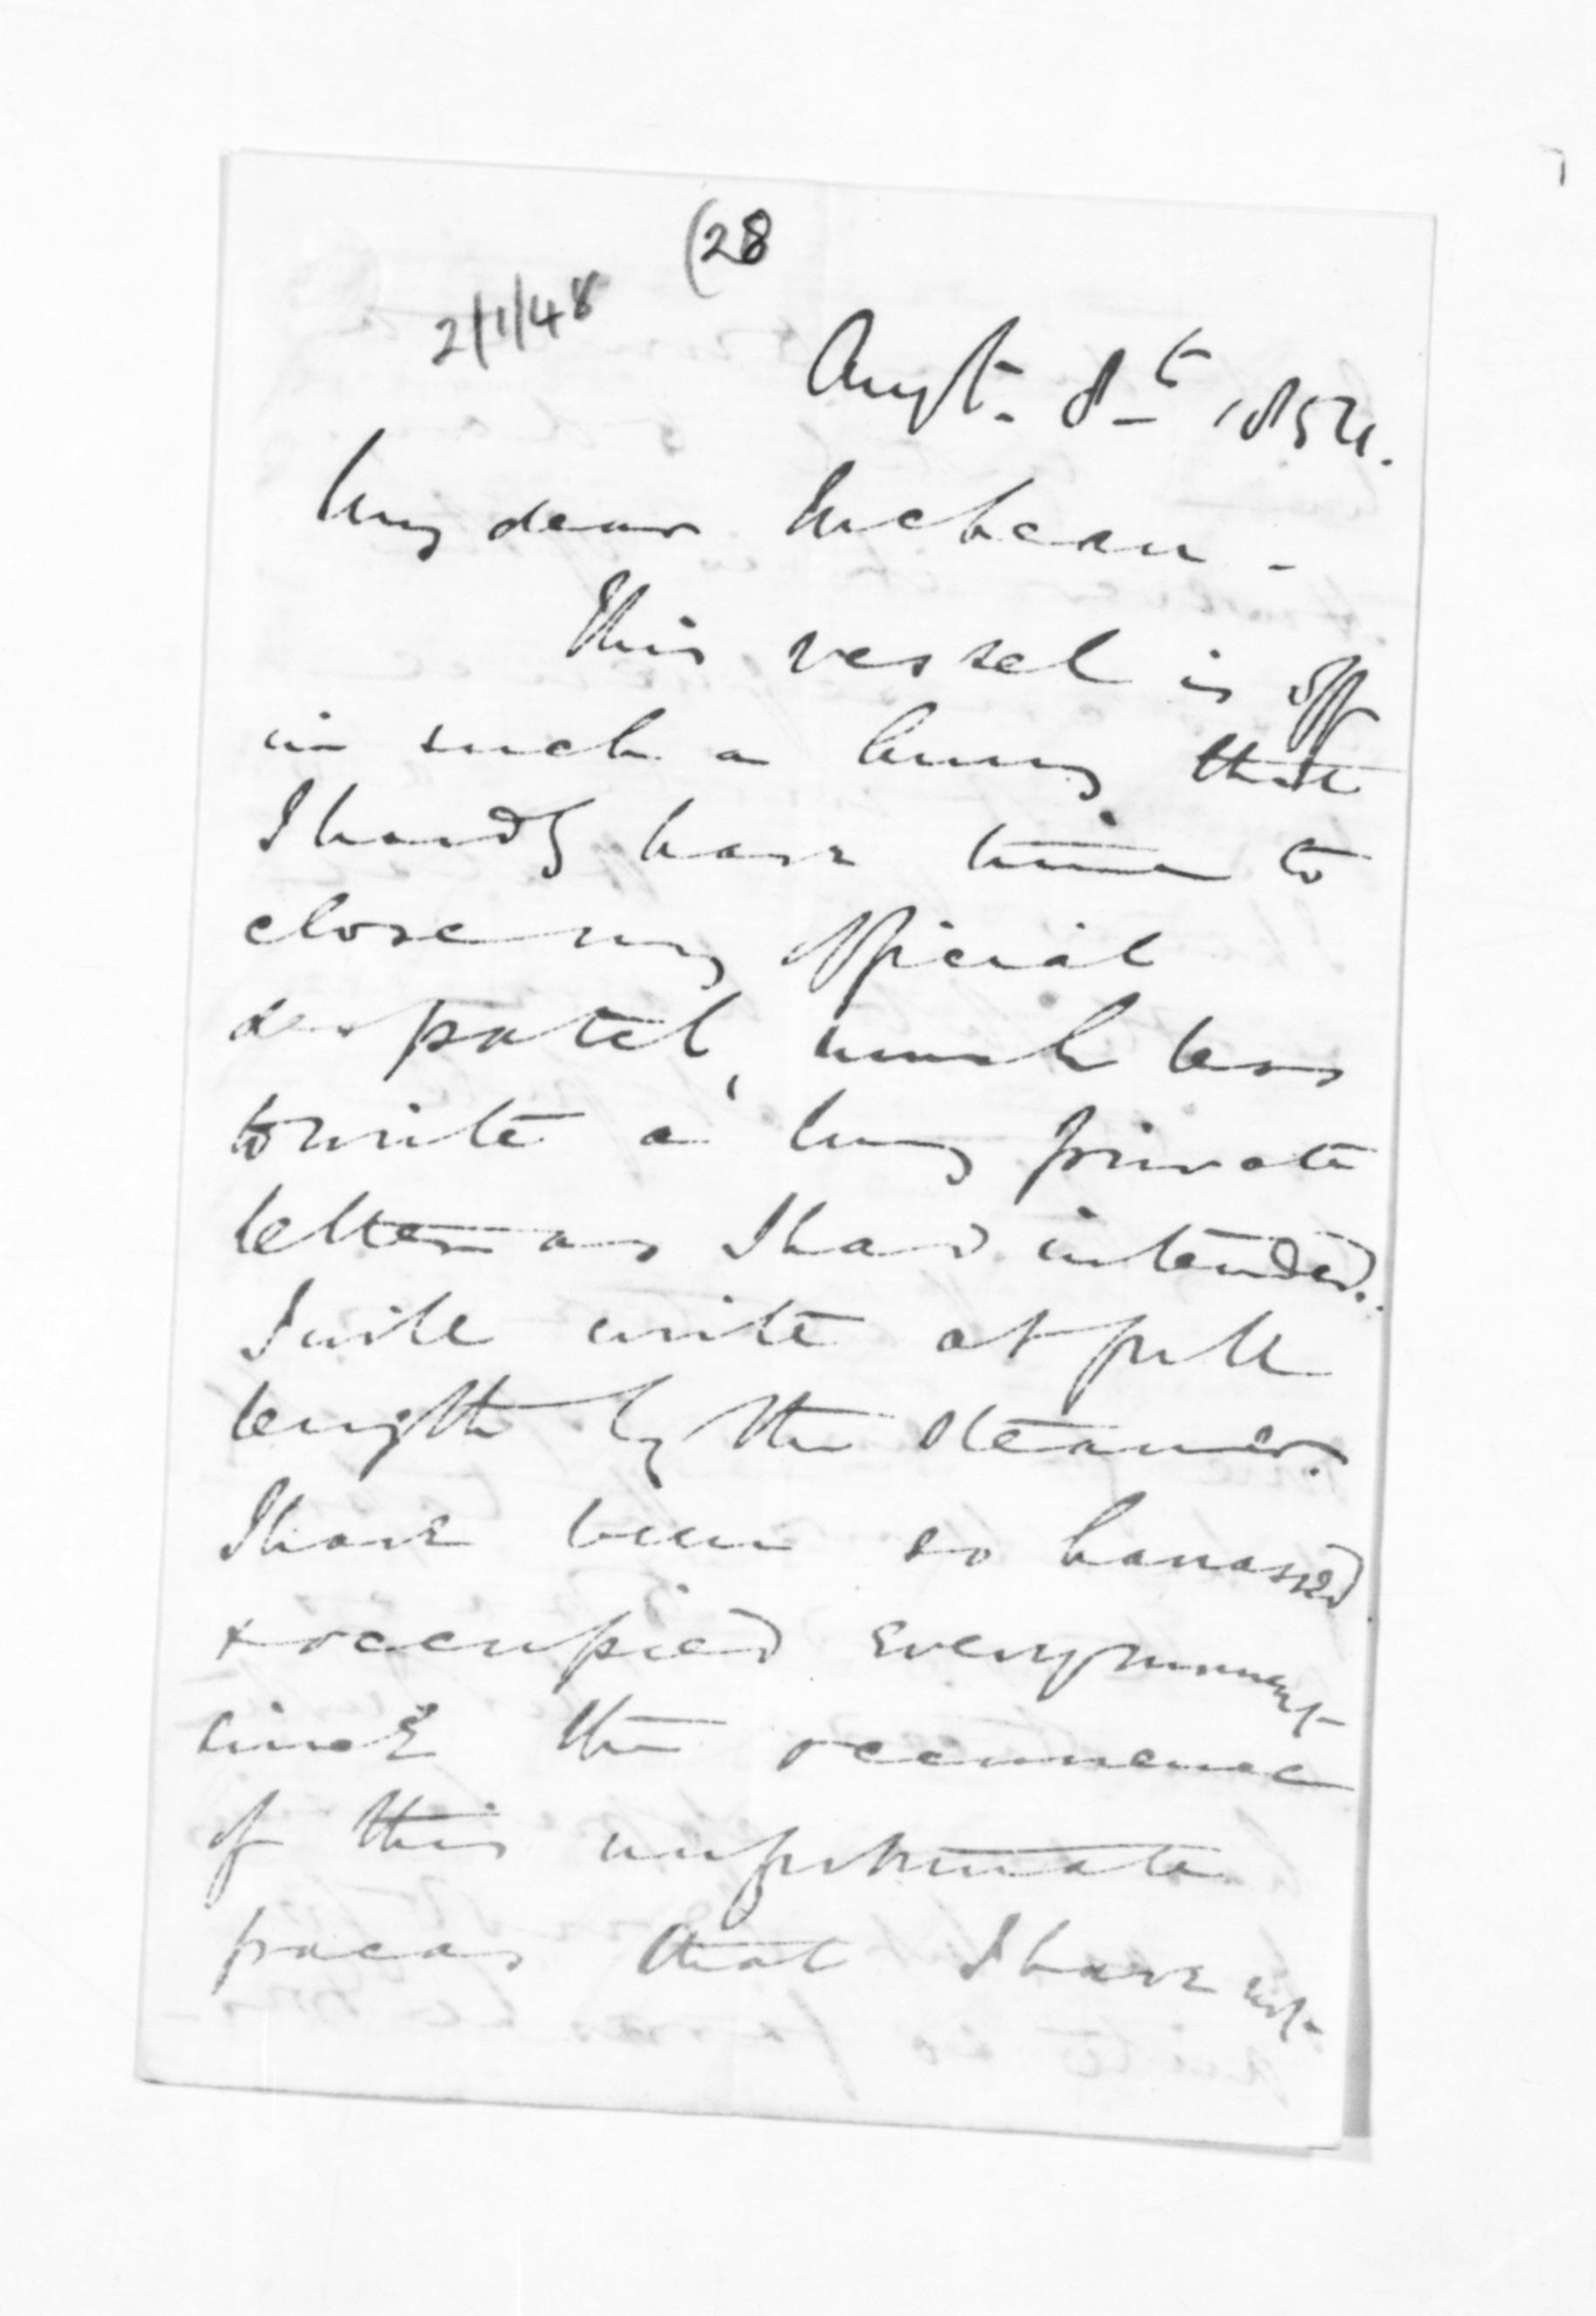 (28
2/1/48
Augt. 8th 1854.
My dear McLean -
This vessel is off
in such a hurry that
I hardly have time to
close my official
despatch, much less
to write a long private
letter as I had intended.
I will write at full
length by the steamer.
I have been so harassed
& occupied every moment
since the occurrence
of this unfortunate
fracas that I have not